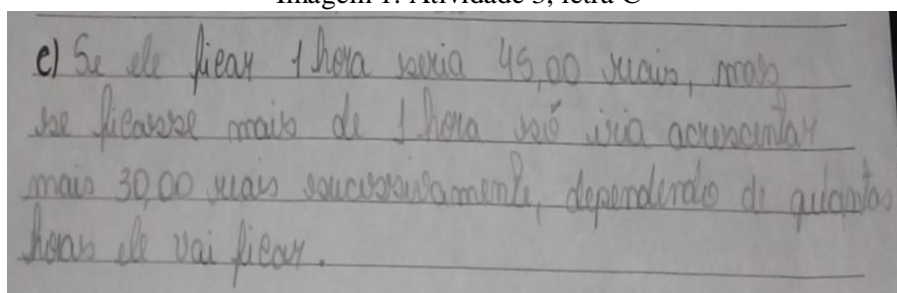 Imagem 1: Atividade 3, letra C
c) Se ele ficar 1 hora seria 45,00 reais, mas
se ficasse mais de 1 hora só iria acrescentar
mais 30,00 reais sucessivamente, dependendo de quantas
horas ele vai ficar.